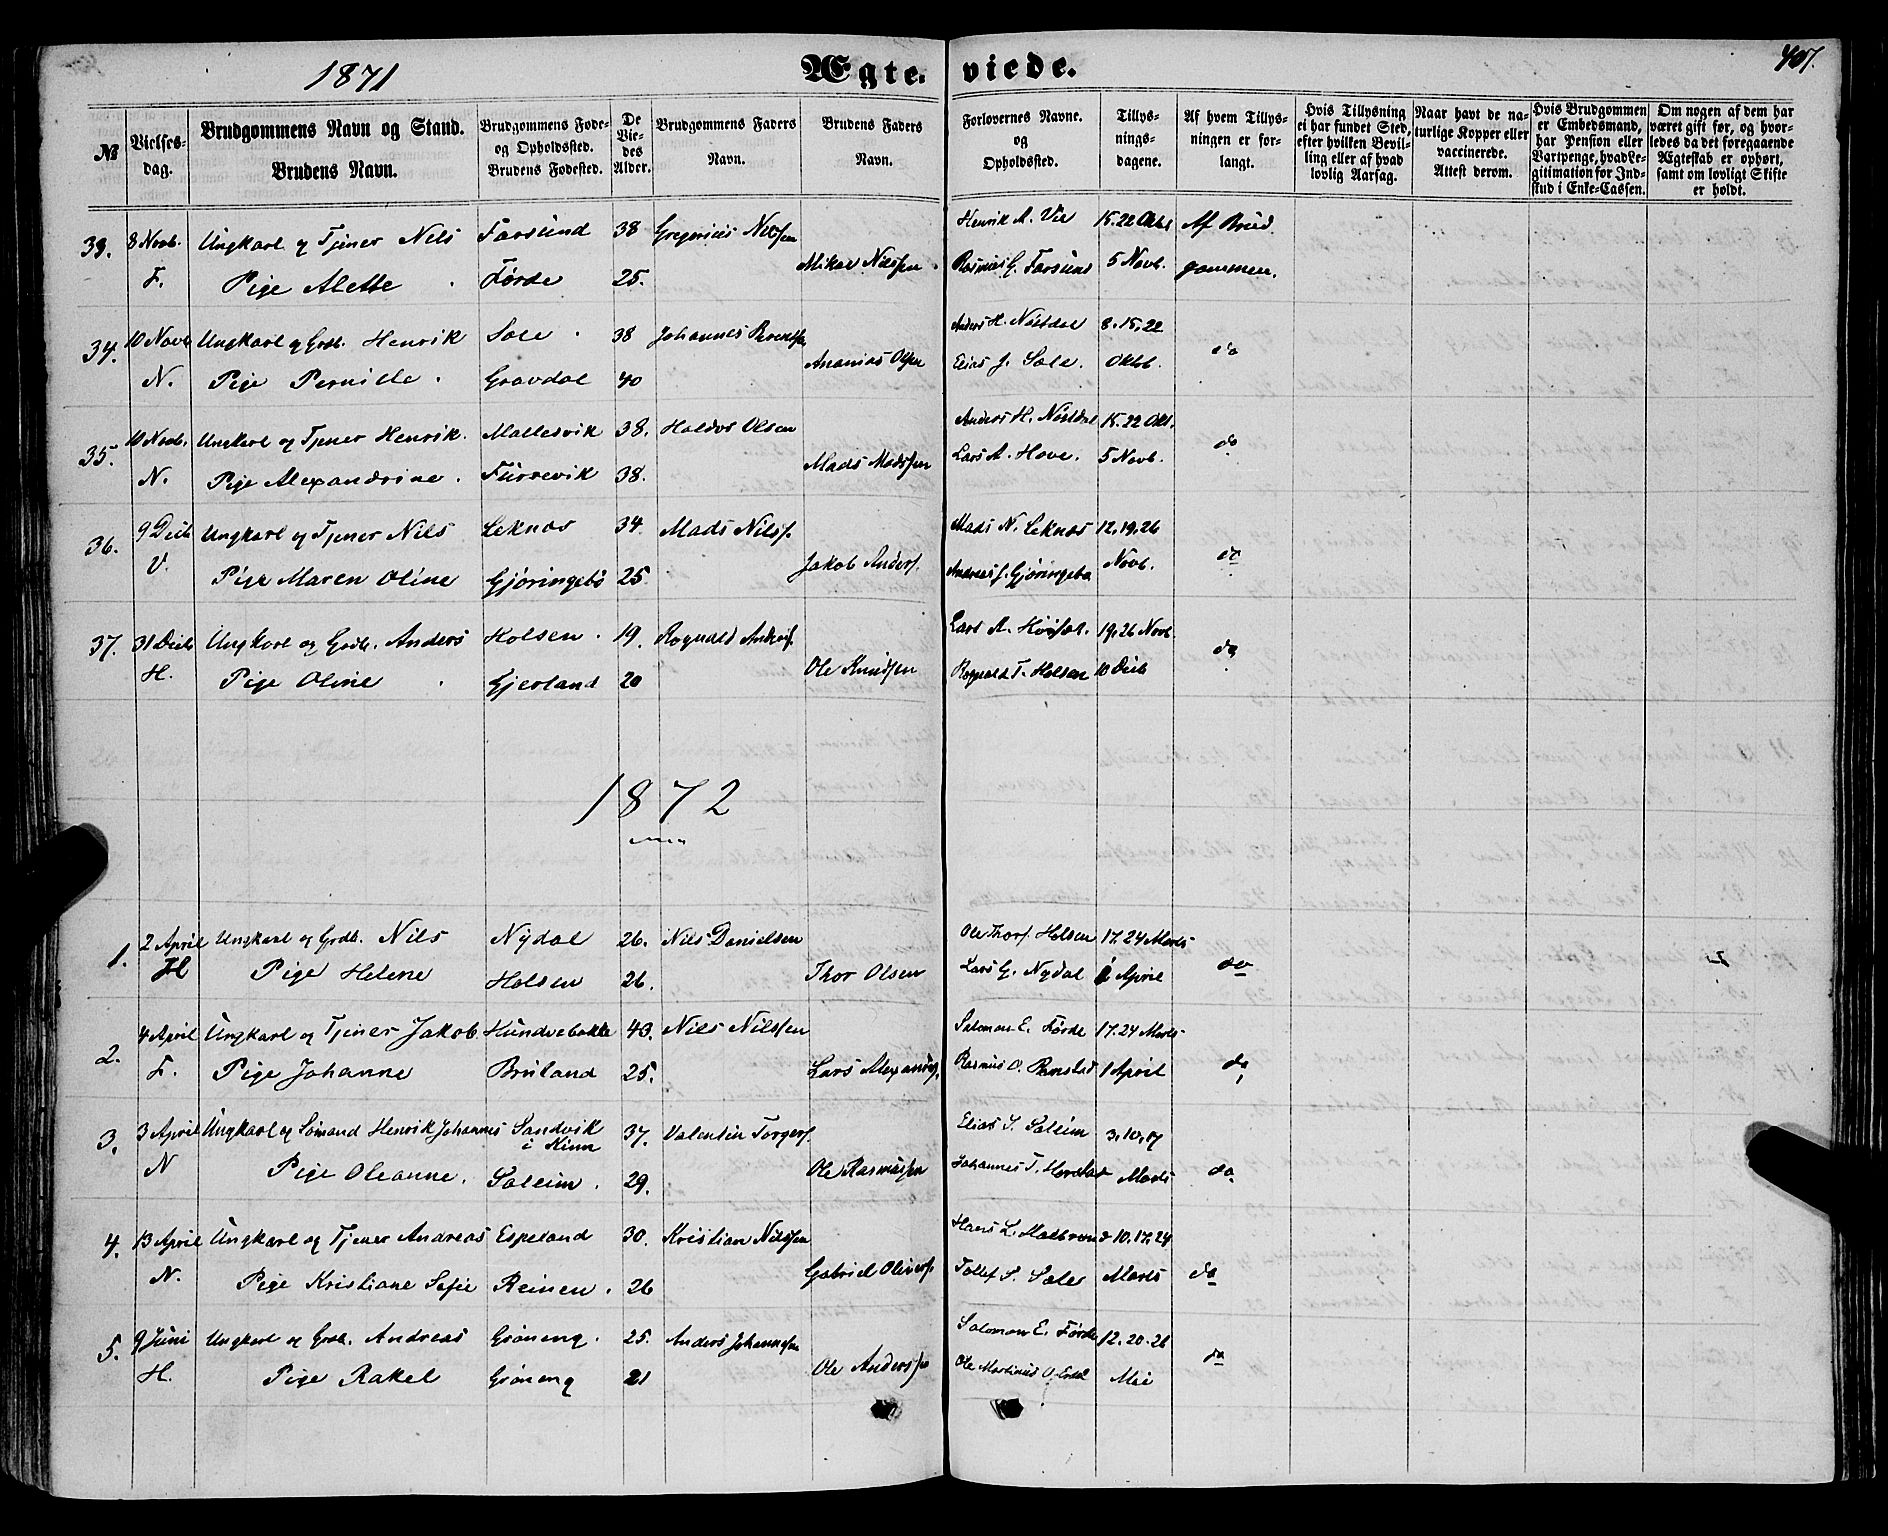 1871 Ægteviede. 407.
№ Vielsesdag. Brudgommens Navn og Stand. Brudens Navn. Brudgommens Føde- og Opholdssted. Brudens Fødested. De Viedes Alder. Brudgommens Faders Navn. Brudens Faders Navn. Forlovernes Navne. og Opholdssted. Tillysningsdagene. Af hvem Tillysningen er forlangt. Hvis Tillysning ei har fundet Sted, efter hvilken Bevilling eller af hvad lovlig Aarsag. Naar havt de naturlige Kopper eller vaccinerede. Attest derom. Hvis Brudgommen er Embedsmand, har Pension eller Vartpenge, hvad Legitimation for Indskud i Enke-Cassen. Om nogen af dem har været gift før, og hvorledes da det foregaaende Ægteskab er ophørt, samt om lovligt Skifte er holdt.
33. 8 Novb. Ungkarl og Tjener Nils Farsund 38 Gregorius Nilsen Henrik A. Vie 15. 22 Oktb Af Brud
F. Pige Alette Førde 25. Mikal Nilssen Rasmus G. Farsund 5 Novb. gommen.
34. 10 Novb Ungkarl og Grdb. Henrik Sole 38 Johannes Anders H. Nøstdal 8. 15, 22
N. Pige Pernille Gravdal 40 Ananias Olsen Elias J. Sole. Oktb. do
35. 10 Novb. Ungkarl og Tjener Henrik Mallesvik 38. Haldor Olsen Anders H. Nøstdal 15. 22 Okt.
N. Pige Alexandrine Furrevik 38. Mads Madssen Lars A. Hove. 5 Novb. do
36. 9 Decb Ungkarl og Tjener Nils Leknes 34. Mads Nilss. Mads N. Leknes 12, 19, 26
V. Pige Maren Oline Gjøringebø 25. Jakob Anders. Andreas J. Gjøringebø Novb. do
37. 31 Decb Ungkarl og Grdb. Anders Holsen 19. Rognald Anders. Lars A. 19, 26 Novb.
H. Pige Oline Gjerland 20 Ole Knudsen Rognald T. Holsen 10 Decb do
1872
1. 2 April Ungkarl og Grdb. Nils Nydal 26. Nils Danielsen Ole Thors. Holsen 17. 24 Marts
H Pige Helene Holsen 26. Thor Olsen Lars G. Nydal 1 April do
2. 4 April Ungkarl og Tjener Jakob Hundvebakke 43. Nils Nilssen Salomon E. Førde 17. 24 Marts
F. Pige Johanne Bruland 25. Lars Alexanders. Rasmus O. 1 April do
3. 3 April Ungkarl og Sømand Henrik Johannes Sandvik i Kinn 37. Valentin Torgers. Elias J. Soleim 3, 10, 17
N Pige Oleanne. Soleim 29. Ole Rasmussen Johannes T. Marts do
4. 13 April Ungkarl og Tjener Andreas Espeland 30. Kristian Nilssen Hans L. 10, 17, 24
N. Pige Kristiane Sofie Reinen 26 Gabriel Olivers. Tollef S. Marts do
5. 9 Juni Ungkarl og Grdb. Andreas Grøneng 25. Anders Johannessen Salomon E. Førde 12. 20. 26
H. Pige Rakel Grøneng 21 Ole Anderss. Ole Martinus O. Mai do